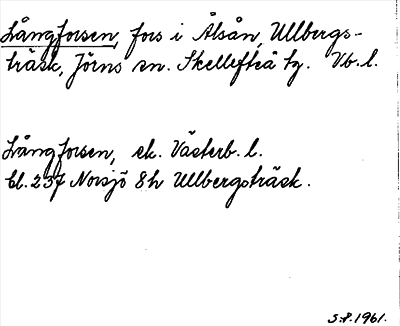 Långforsen, fors i Ålsån, Ullbergs-
träsk, Jörns sn. Skellefteå tg. Vb. l.
Långforsen, ek. Västerb. l.
bl. 237 Norsjö 8h Ullbergsträsk.
S.P. 1961.